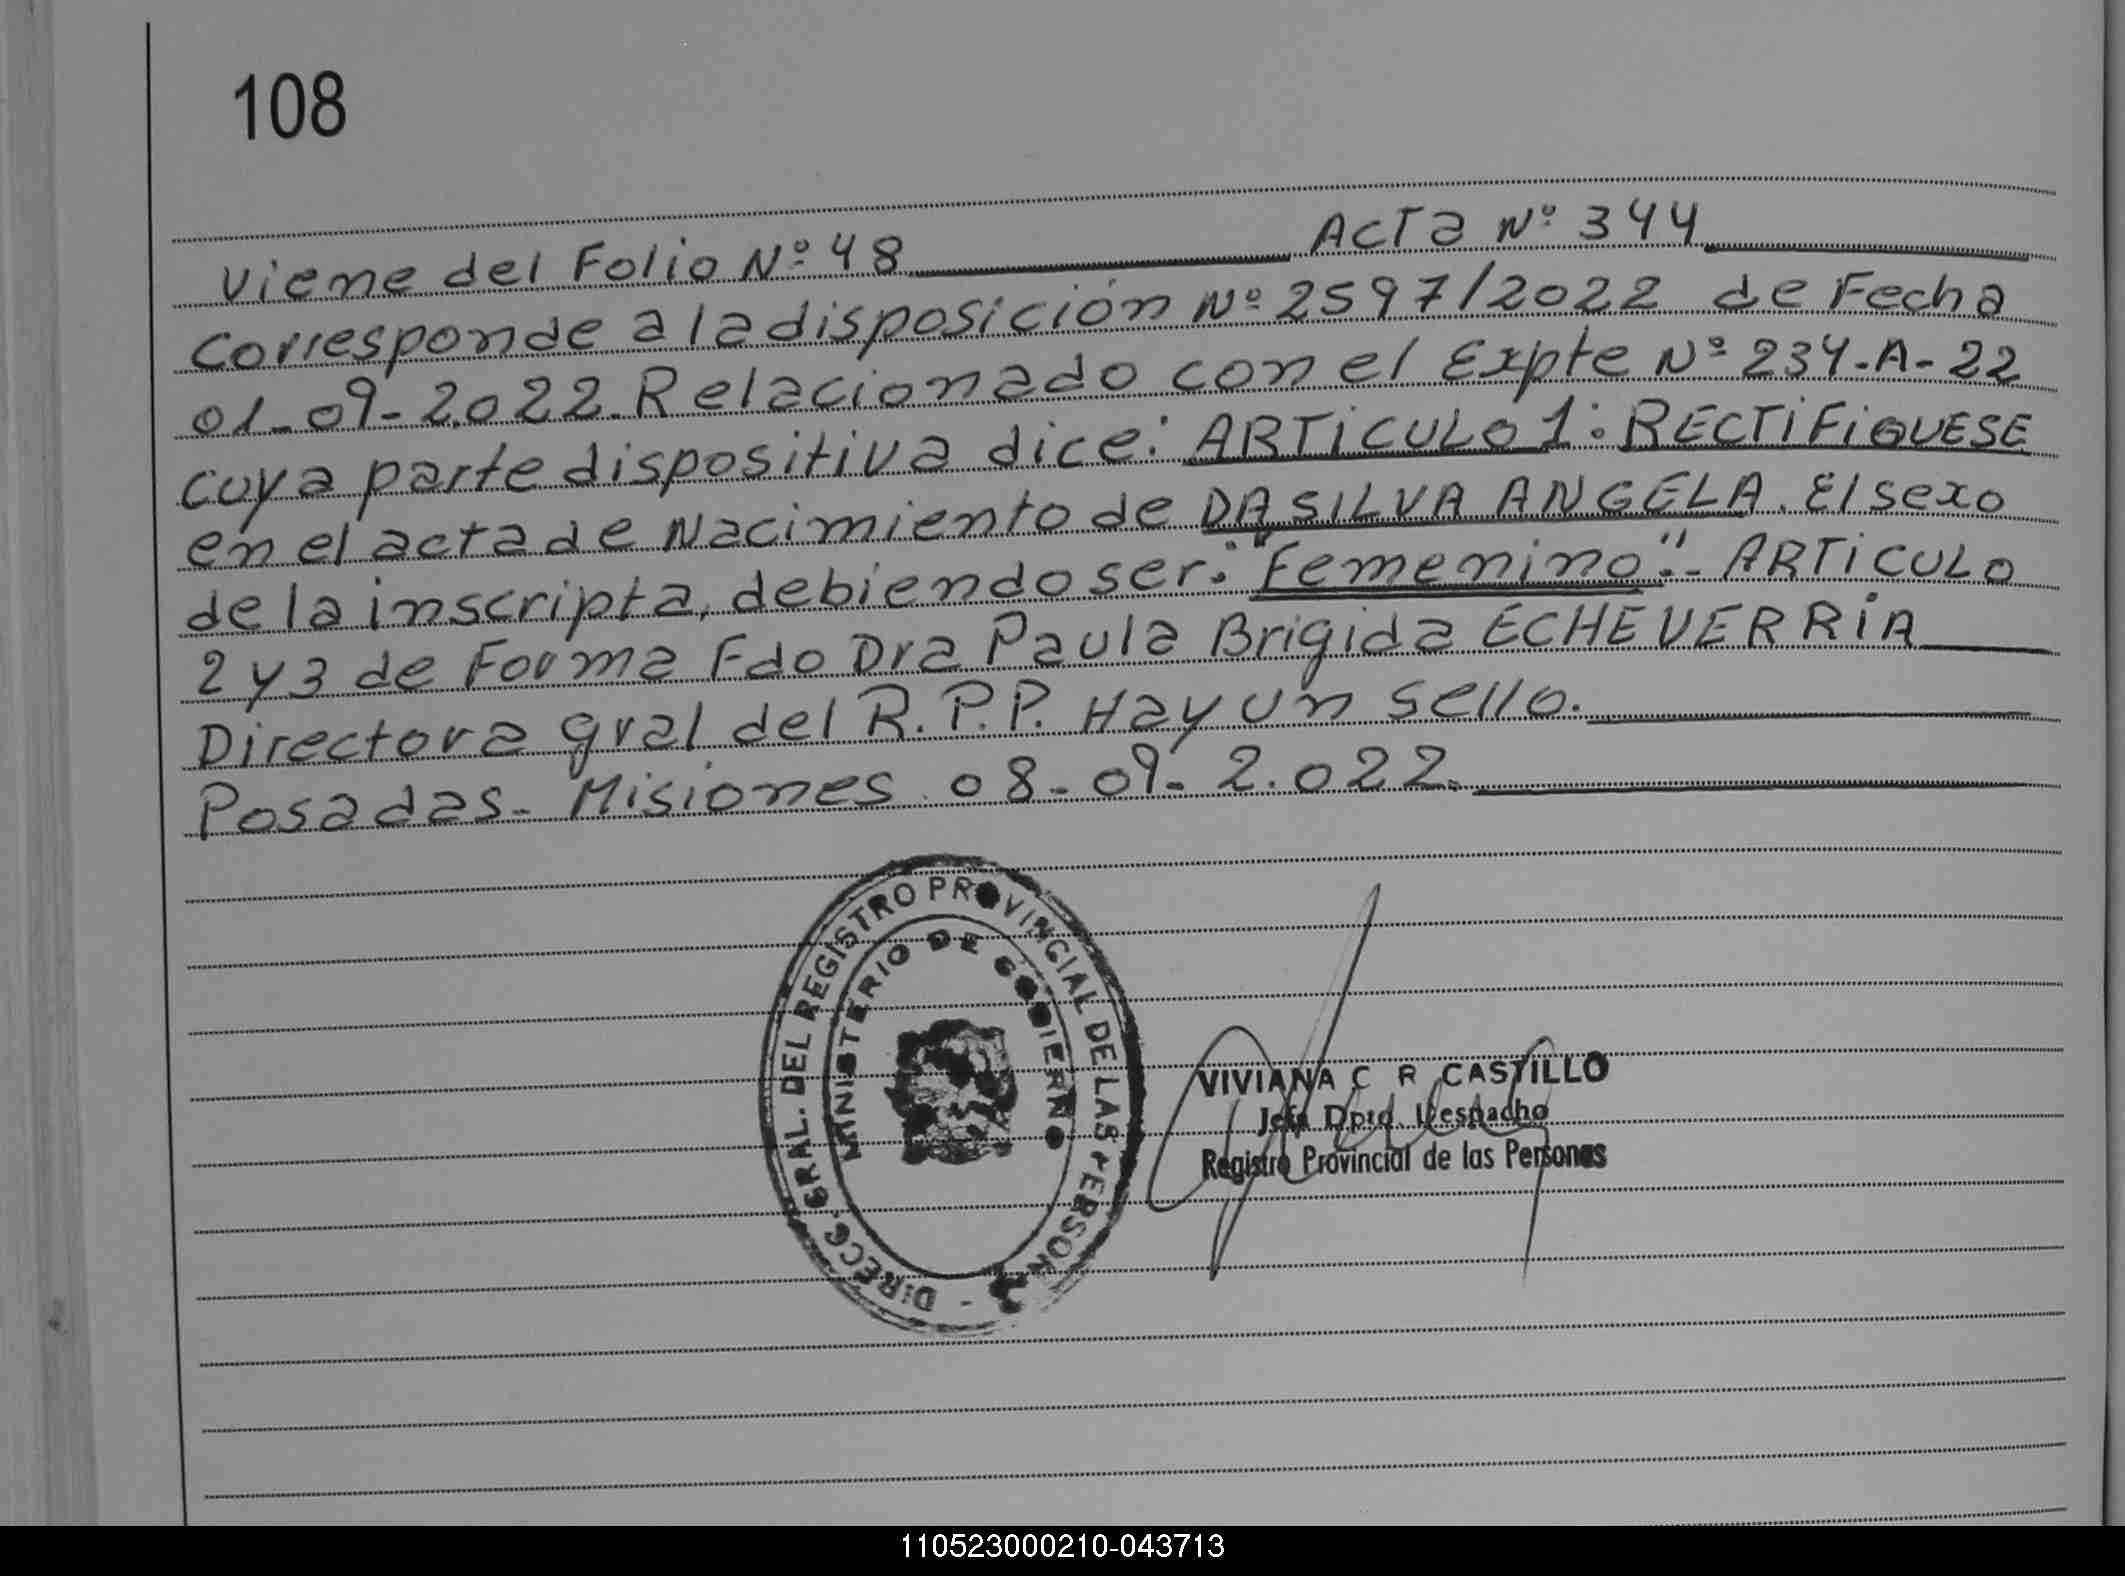 108
Viene del Folio Nº 48 Acta Nº 344
Corresponde a la disposición Nº 2597/2022 de Fecha
01-09-2.022. Relacionado con el Expte Nº 234-A-22
cuya parte dispositiva dice: ARTICULO 1: RECTIFIQUESE
en el acta de Nacimiento de DA SILVA ANGELA. El sexo
de la inscripta, debiendo ser: "Femenino".- ARTICULO
2 y 3 de Forma Fdo Dra Paula Brigida ECHEVERRIA
Directora gral del R.P.P. Hay un sello.
Posadas- Misiones 08-09-2.022.
DIRECC. GRAL. DEL REGISTRO PROVINCIAL DE LAS PERSON
MINISTERIO DE GOBIERNO
VIVIANA C R CASTILLO
Jefa Dpto. Despacho
Registro Provincial de las Personas
110523000210-043713